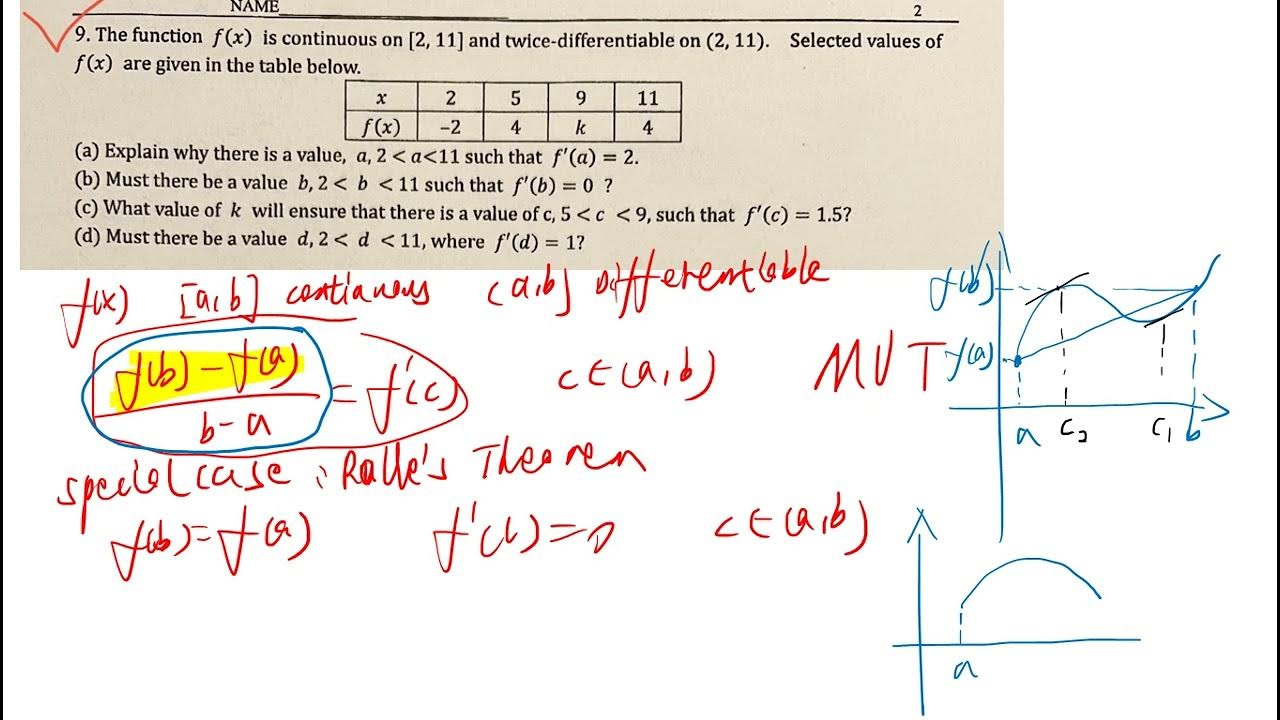 NAME 2
9. The function f(x) is continuous on [2, 11] and twice-differentiable on (2, 11). Selected values of
f(x) are given in the table below.
x 2 5 9 11
f(x) −2 4 k 4
(a) Explain why there is a value, a, 2 < a<11 such that f′(a) = 2.
(b) Must there be a value b, 2 < b < 11 such that f′(b) = 0 ?
(c) What value of k will ensure that there is a value of c, 5 < c < 9, such that f′(c) = 1.5?
(d) Must there be a value d, 2 < d < 11, where f′(d) = 1?
f(x) [a,b] continuous (a,b] differentiable
f(b) − f(a)
b - a
= f′(c) c∈(a,b) MVT
special case : Rolle's Theorem
f(b)=f(a) f′(c)=0 c∈(a,b)
f(b)
f(a)
a c2 c1 b
a